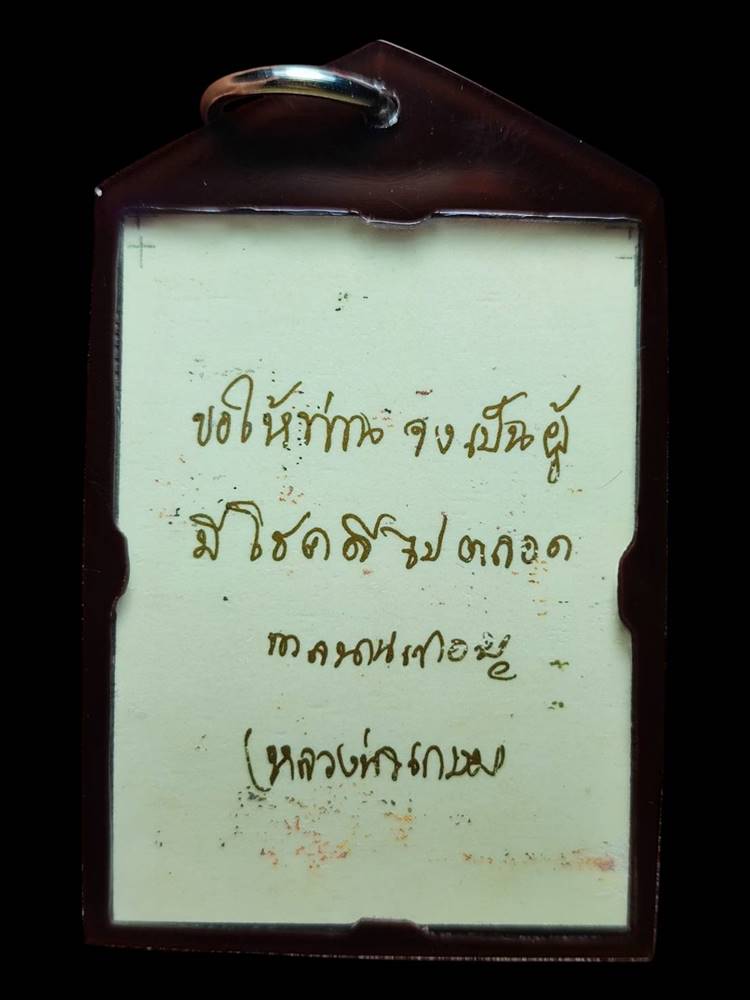 ขอให้ท่าน จงเป็นผู้
มีโชคดีไปตลอด
กาลนานเทอญ
(หลวงพ่อเกษม)